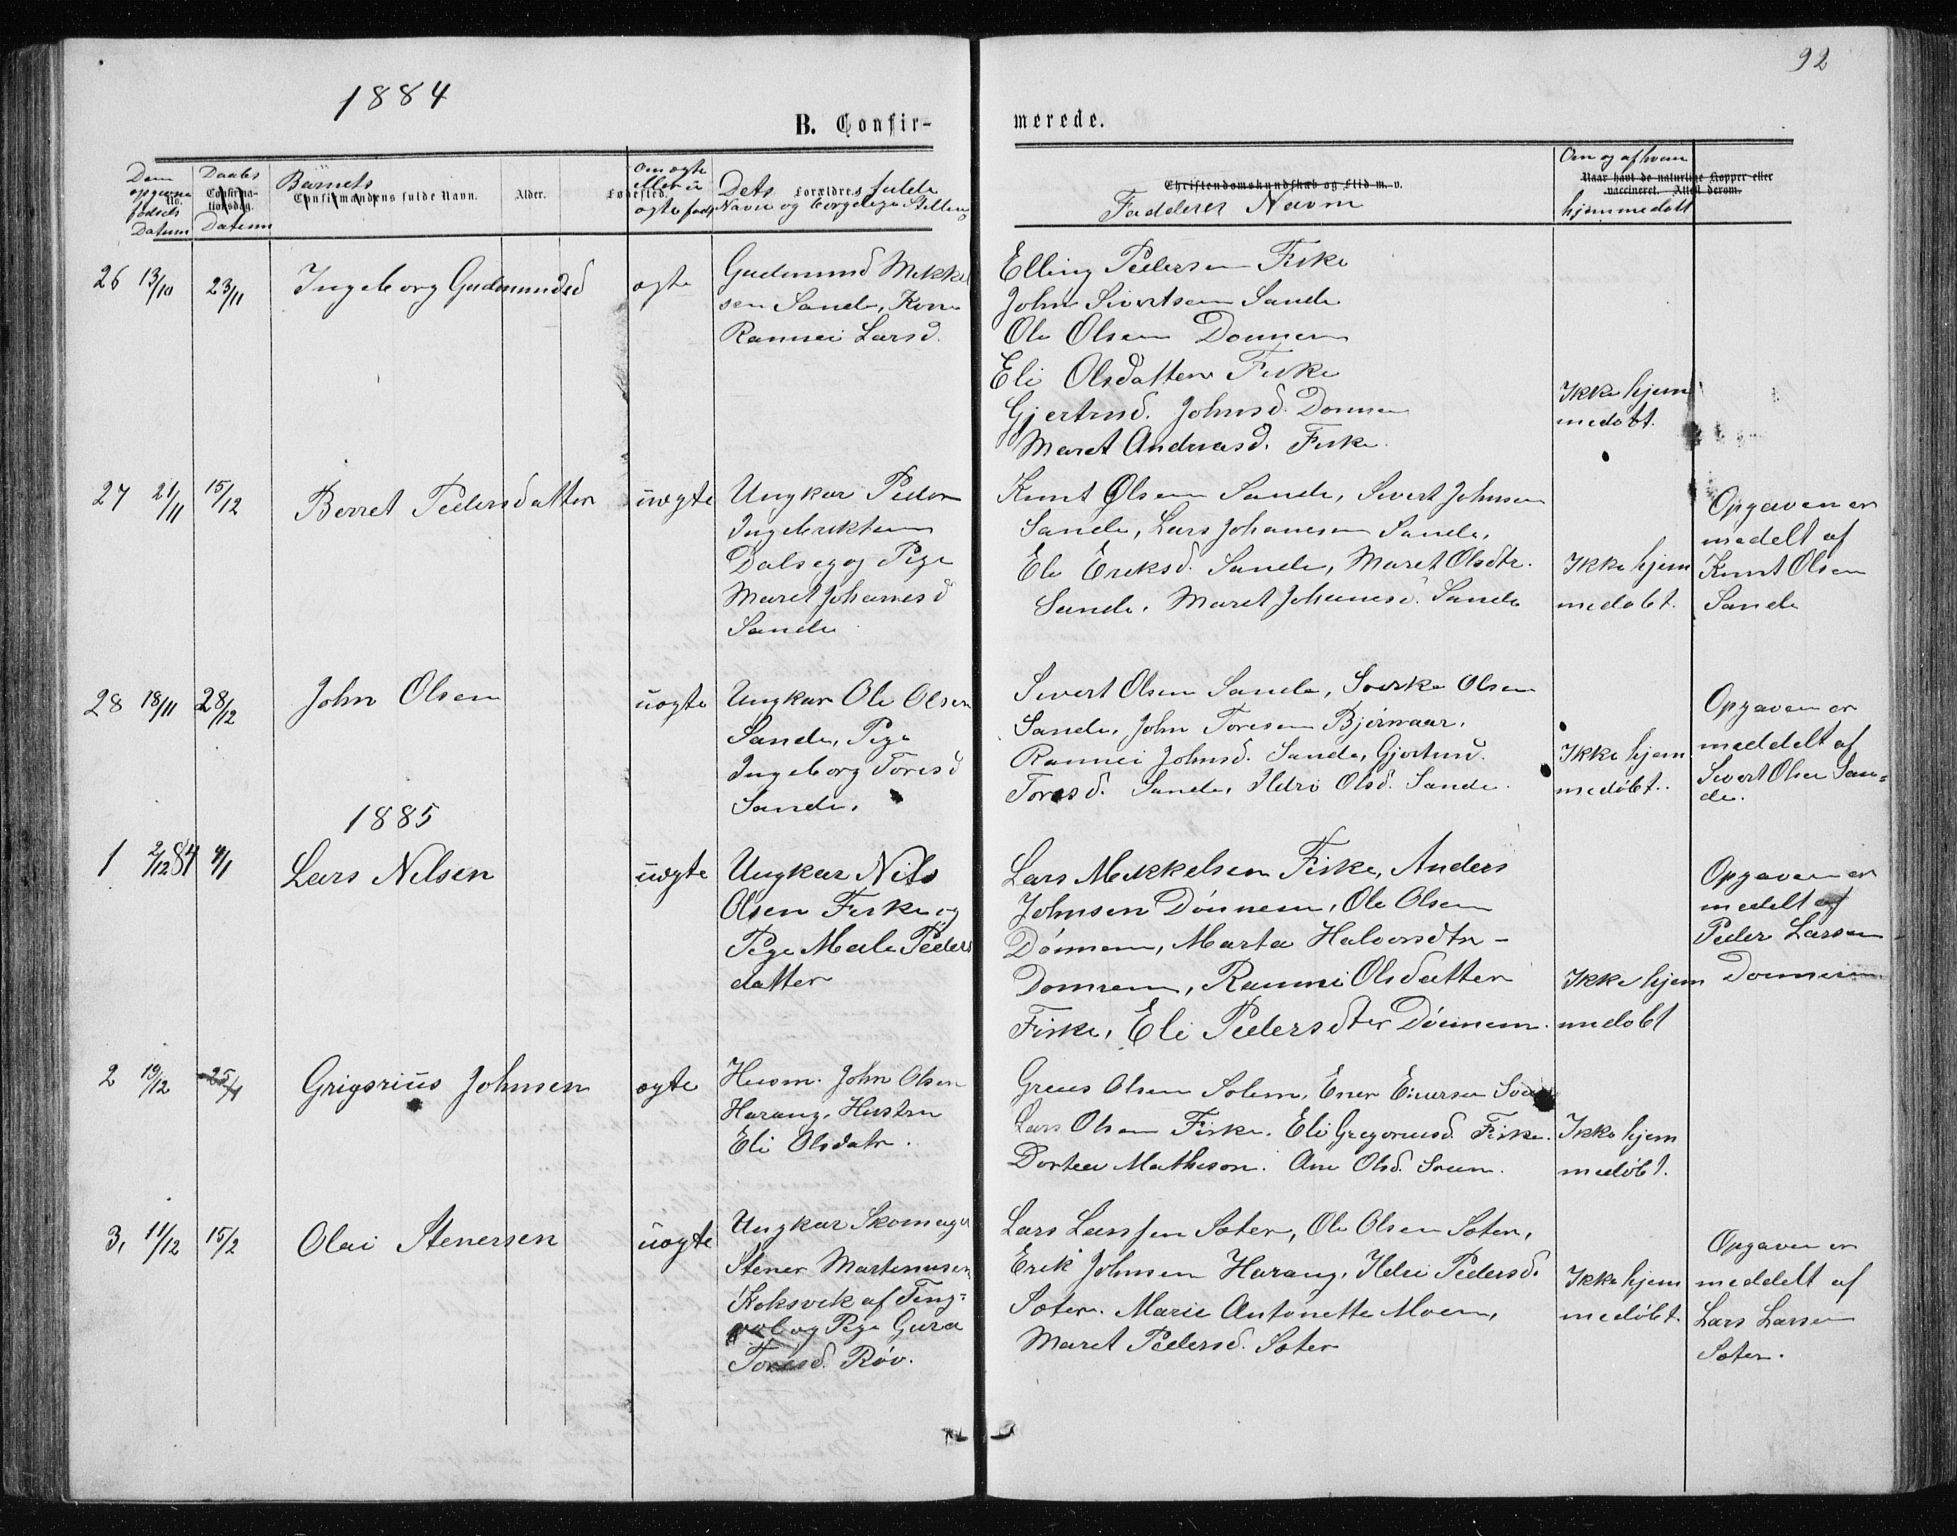 92
1884
B. Confir-
merede.
Den opgivne fødsels Datum
Daabs Datum
Børnets
Confirmandens fulde Navn.
Alder.
Om ægte eller uægte født
Fødested.
Dets Forældres fulde
Navn og borgelige Stilling
Christendomskundskab og Flid m. v.
Fadderes Navn
Om og af hvem
Naar havt de naturlige Kopper eller
vaccineret. Attest derom.
hjemmedøbt
26 13/10 23/11 Ingeborg Gudmundsd ægte
Gudmund Mikkel
sen Sande, Kone
Rannei Larsd.
Elling Pedersen Fiske
John Sivertsen Sande
Ole Olsen Dønnem
Eli Olsdatter Fiske
Gjertrud. Johnsd. Dønnem
Maret Andreasd. Fiske.
Ikke hjem
medøbt.
27 21/11 15/12 Berret Pedersdatter uægte
Ungkar Peder
Ingebriktsen
Dalseg og Pige
Maret Johanesd
Sande
Knut Olsen Sande, Sivert Johnsen
Sande, Lars Johanesen Sande,
Eli Eriksd. Sande, Maret Olsdtr.
Sande, Maret Johanesd. Sande
Ikke hjem
medøbt.
Opgaven er
medelt af
Knut Olsen
Sande
28 18/11 28/12 John Olsen uægte
Ungkar Ole Olsen
Sande, Pige
Ingeborg Toresd
Sande.
Sivert Olsen Sande, Sverke Olsen
Sande, John Toresen Bjørnaar,
Rannei Johnsd. Sande, Gjertrud.
Toresd. Sande, Ildri Olsd. Sande.
Ikke hjem
medøbt.
Opgaven er
meddelt af
Sivert Olsen San=
de.
1885
1 2/12 84 4/1 Lars Nilsen uægte
Ungkar Nils
Olsen Fiske og
Pige Male Peders
datter
Lars Mikkelsen Fiske, Anders
Johnsen Dønnem, Ole Olsen
Dønnem, Marta Halvorsdtr -
Dønnem, Rannei Olsdatter
Fiske, Eli Pedersdter Dønnem.
Ikke hjem
medøbt
Opgaven er
medelt af
Peder Larsen
Dønnem
2 19/12 25/1 Grigorius Johnsen ægte
Husm. John Olsen
Harang, Hustru
Eli Olsdatr.
Greus Olsen Solem, Ener Enersen
Lars Olsen Fiske. Eli Gregoriusd. Fiske.
Dortea Matheson. Ane Olsd.
Ikke hjem
medøbt.
3, 11/12 15/2 Olai Stenersen uægte
Ungkar Skomager
Stener Martinusen
Koksvik af Ting=
vol og Pige Gura
Toresd. Røv.
Lars Larssen Sæter, Ole Olsen Sæter,
Erik Johnsen Harang, Ildri Pedersd.
Sæter. Marie Antonette Moen,
Maret Pedersd. Sæter
Ikke hjem
medøbt.
Opgaven er
meddelt af
Lars Larsen
Sæter.